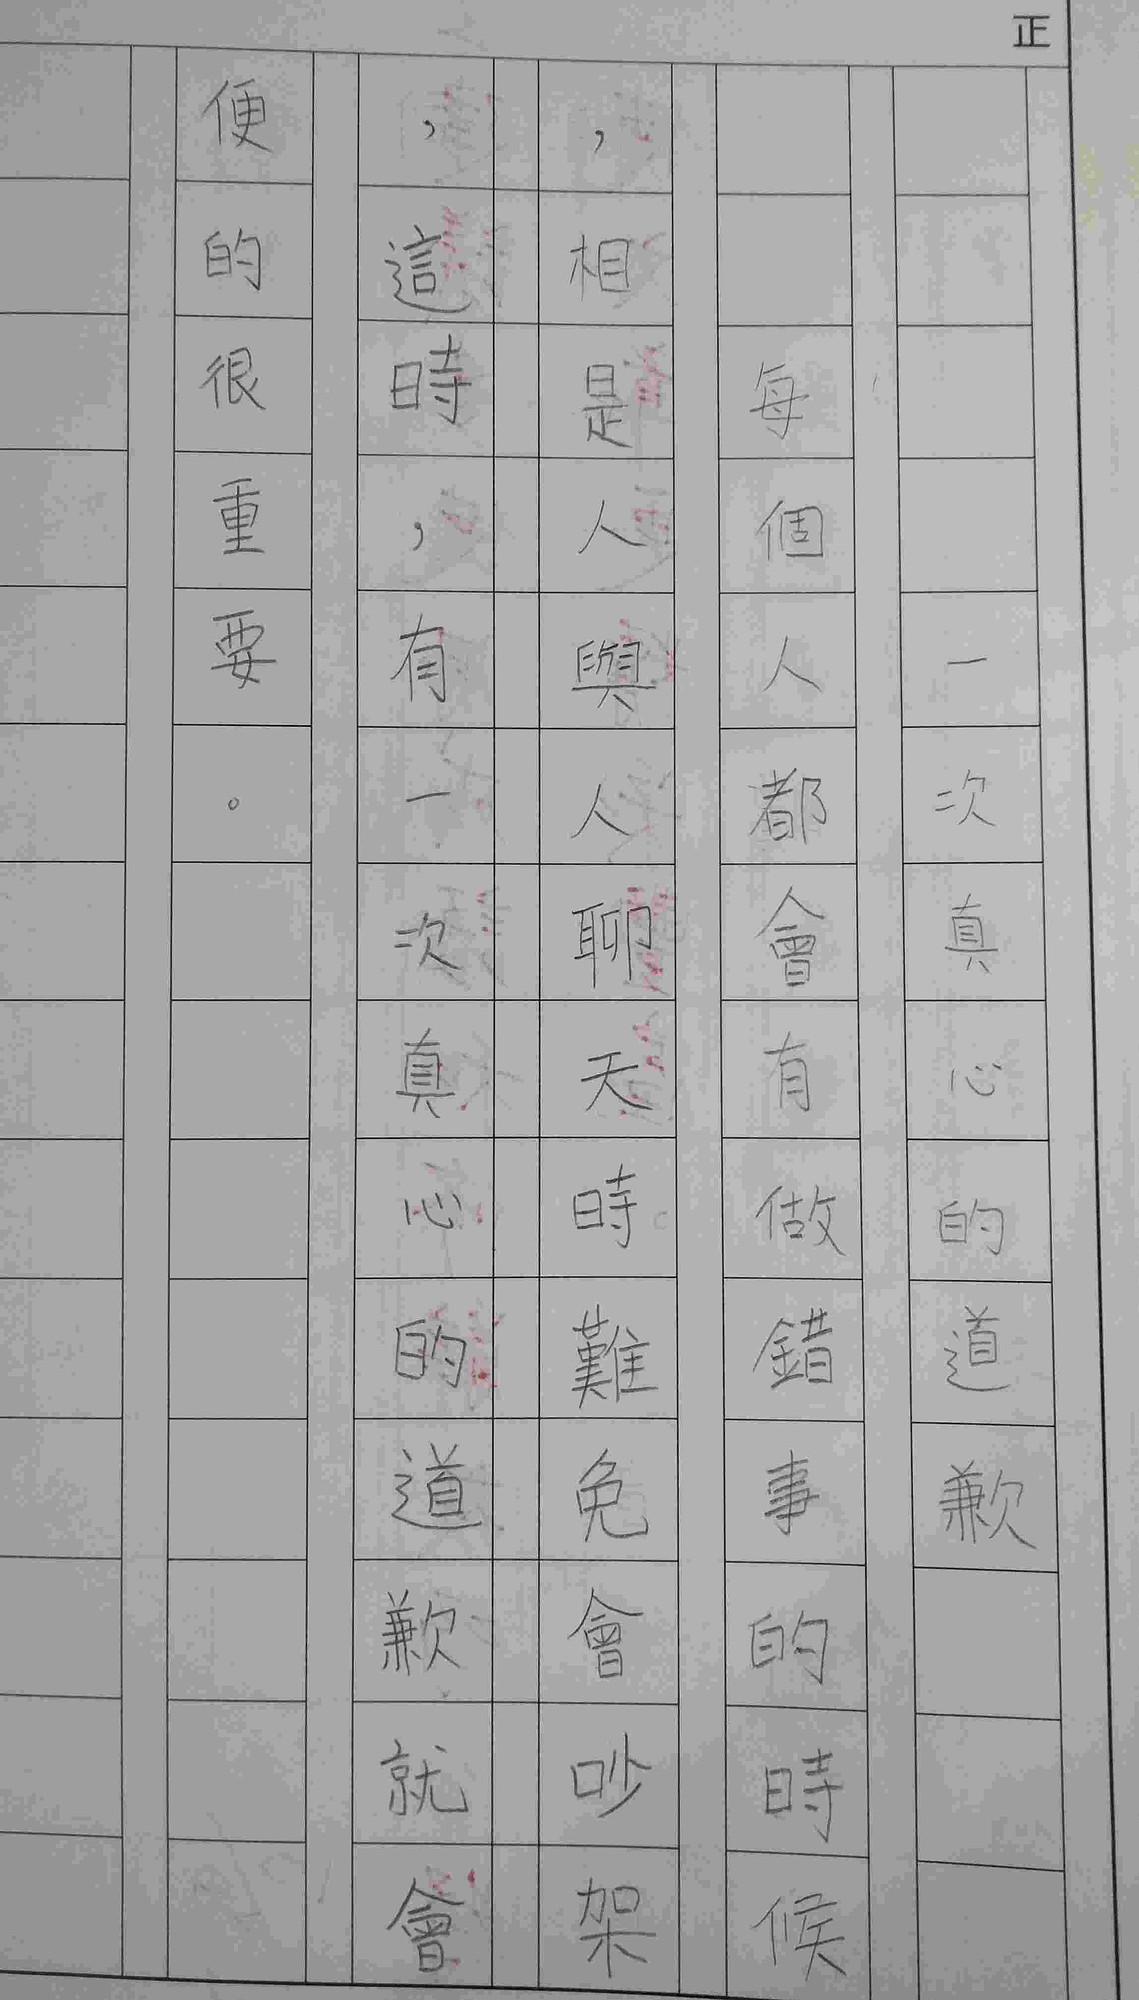 正
一次真心的道歉
每個人都會有做錯事的時候
，相是人與人聊天時難免會吵架
，這時，有一次真心的道歉就會
便的很重要。